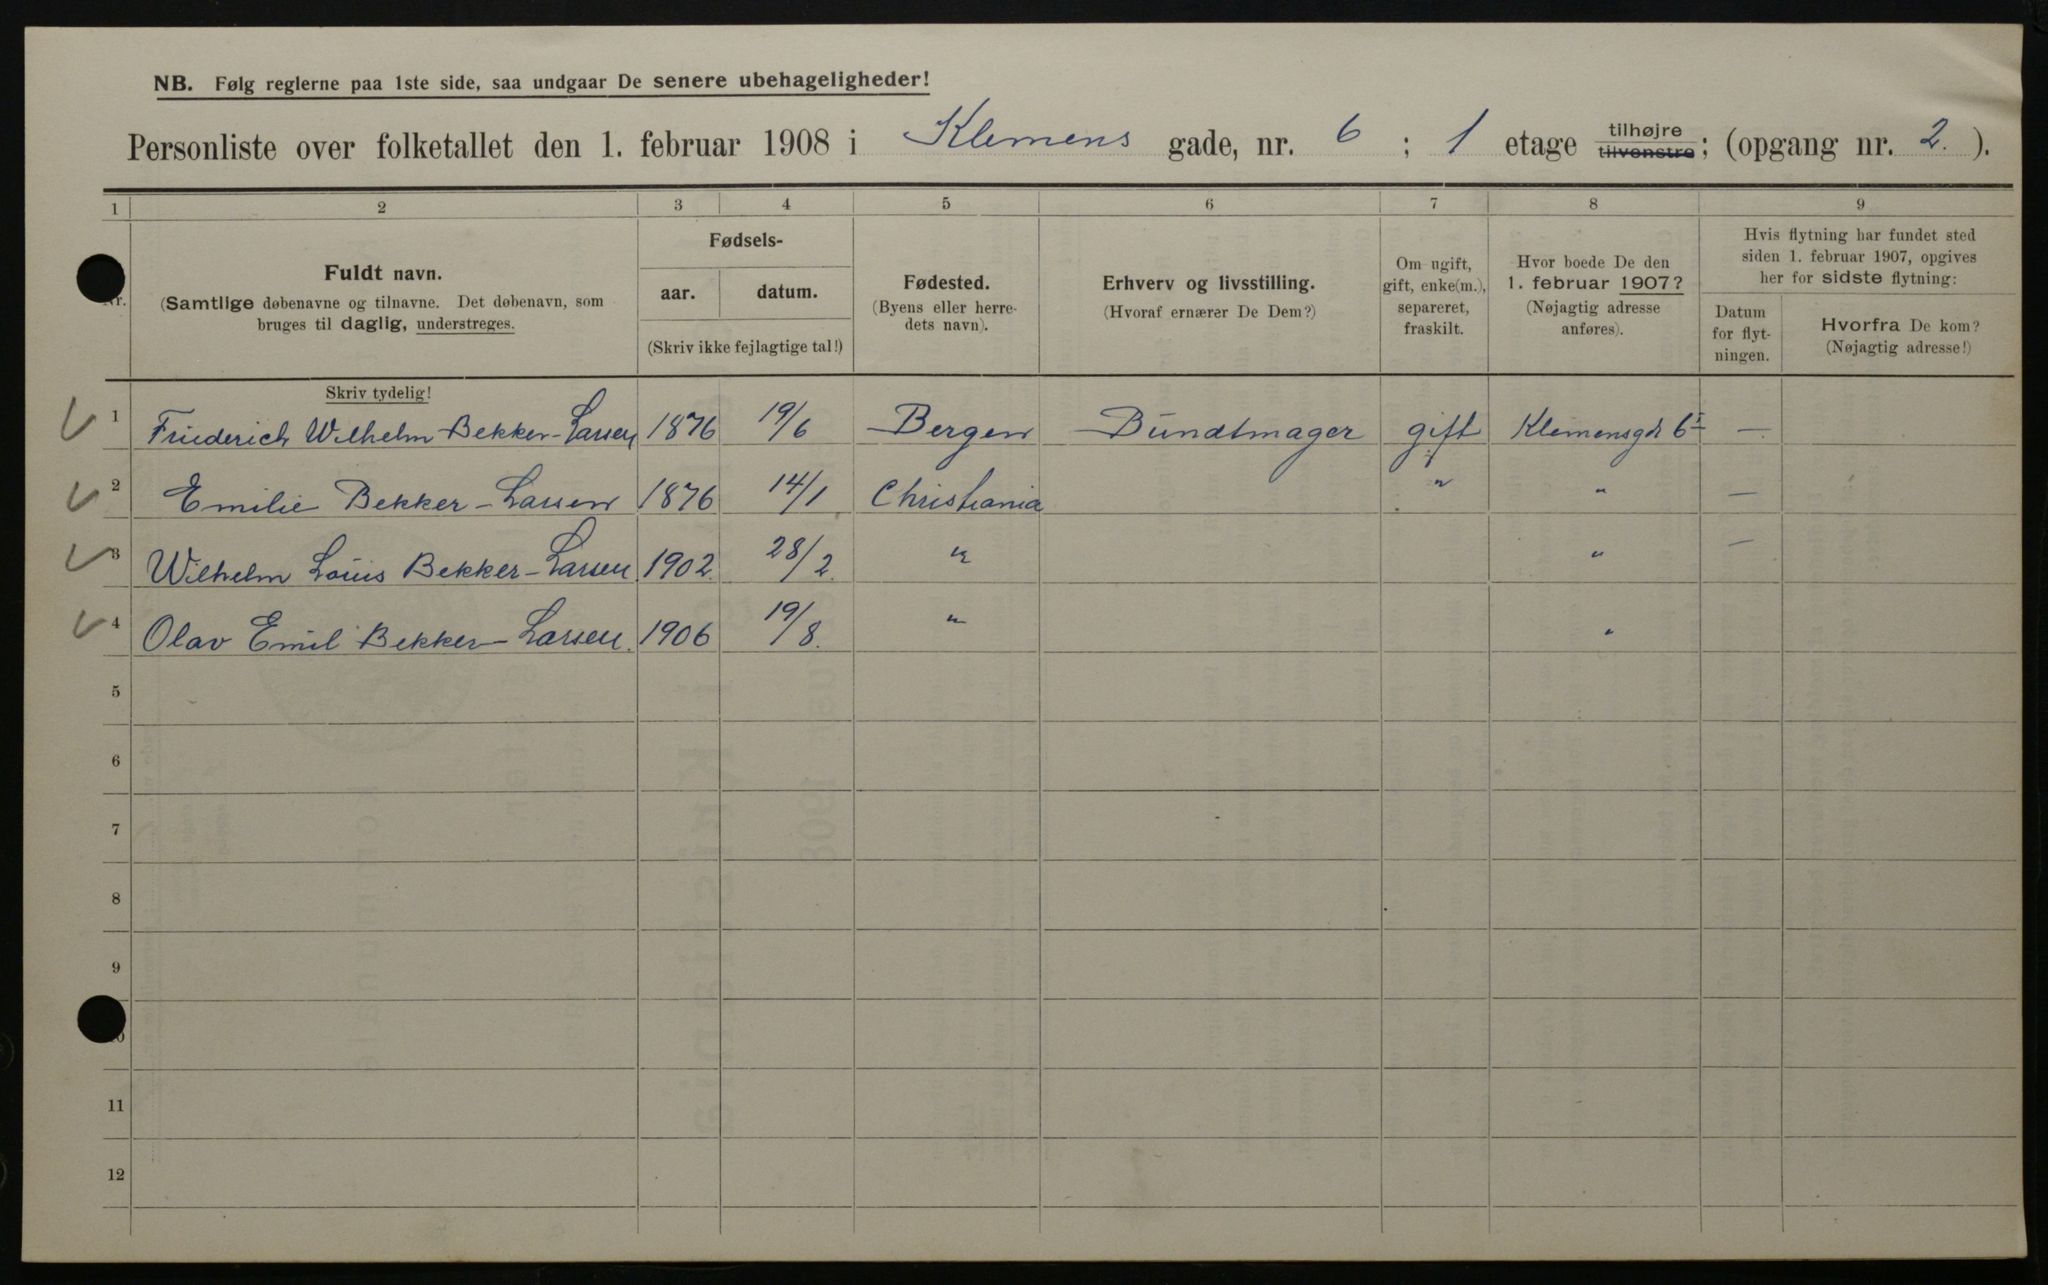 NB. Følg reglerne paa 1ste side, saa undgaar De senere ubehageligheder!
Personliste over folketallet den 1. februar 1908 i Klemens gade, nr. 6 ; 1 etage tilhøjre tilvenstre; (opgang nr. 2. ).
1 2 3 4 5 6 7 8 9
Nr.
Fuldt navn.
(Samtlige døbenavne og tilnavne. Det døbenavn, som
bruges til daglig, understreges.
Skriv tydelig!
Fødsels-
aar. datum.
(Skriv ikke fejlagtige tal!)
Fødested.
(Byens eller herre-
dets navn).
Erhverv og livsstilling.
(Hvoraf ernærer De Dem?)
Om ugift,
gift, enke(m.),
separeret,
fraskilt.
Hvor boede De den
1. februar 1907?
(Nøjagtig adresse
anføres).
Hvis flytning har fundet sted
siden 1. februar 1907, opgives
her for sidste flytning:
Datum
for flyt-
ningen.
Hvorfra De kom?
(Nøjagtig adresse!)
1 Friederich Wilhelm Bekker-Larsen 1876 19/6 Bergen Bundtmager gift Klemensgd 6 I —
2 Emilie Bekker-Larsen 1876 14/1 Christiania " " —
3 Wilhelm Louis Bekker-Larsen 1902. 28/2. " " —
4 Olav Emil Bekker-Larsen. 1906 19/8. " "
5
6
7
8
9
10
11
12